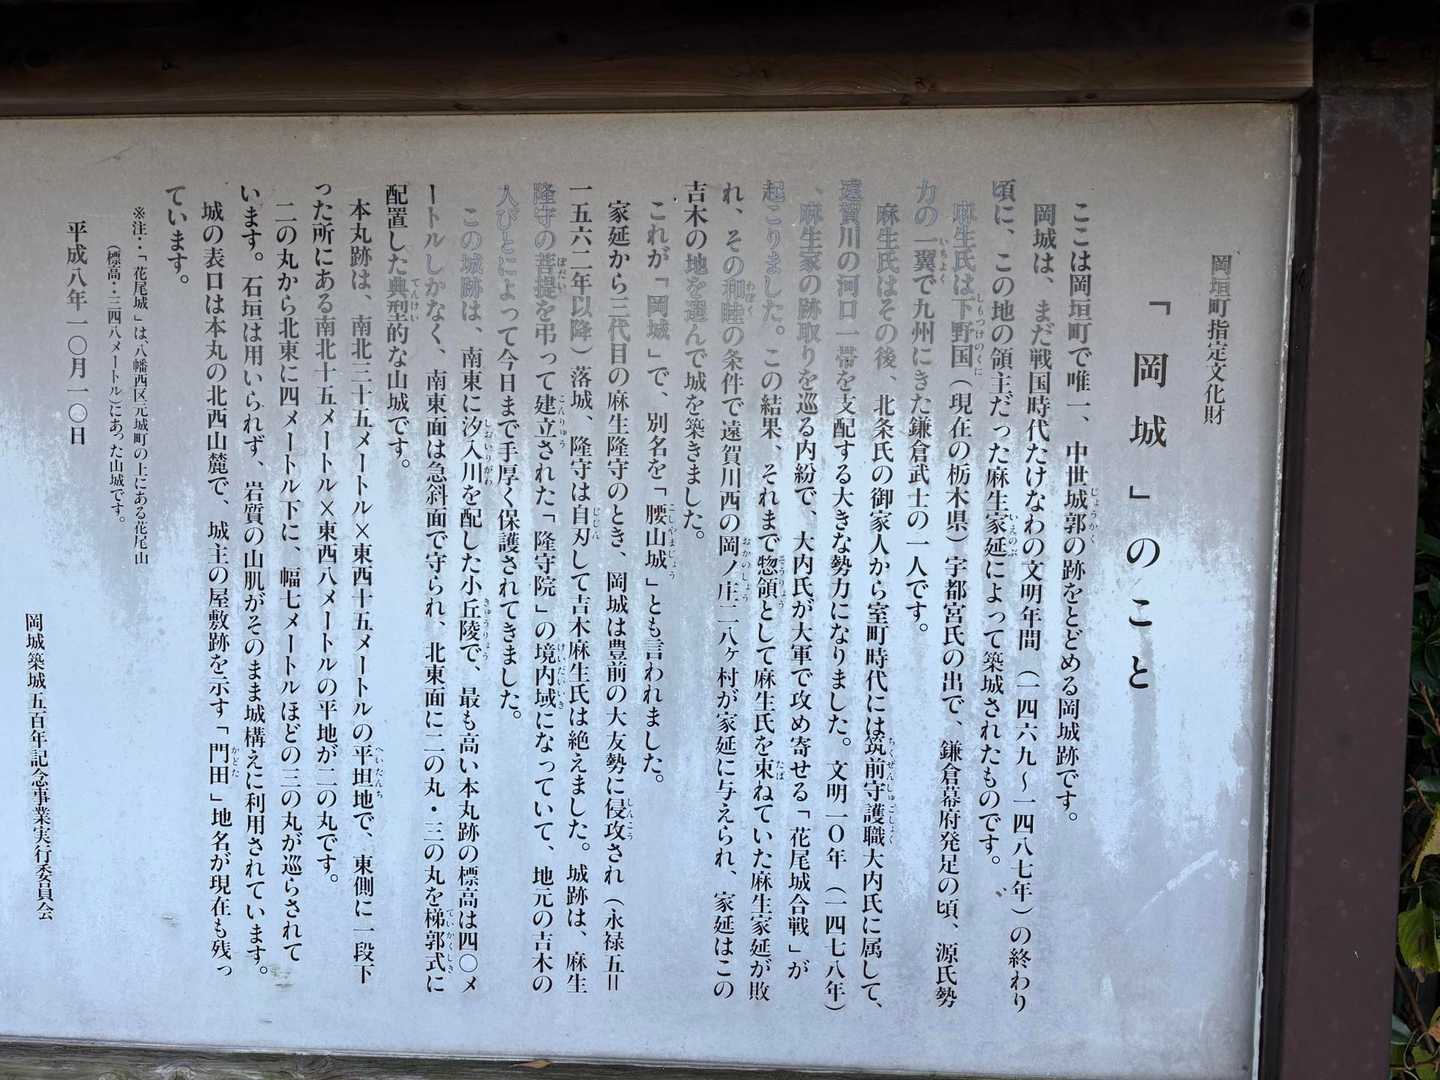 岡垣町指定文化財
「岡城」のこと
ここは岡垣町で唯一、中世城郭の跡をとどめる岡城跡です。
岡城は、まだ戦国時代たけなわの文明年間（一四六九～一四八七年）の終わり
頃に、この地の領主だった麻生家延によって築城されたものです。
麻生氏は下野国（現在の栃木県）宇都宮氏の出で、鎌倉幕府発足の頃、源氏勢
力の一翼で九州にきた鎌倉武士の一人です。
麻生氏はその後、北条氏の御家人から室町時代には筑前守護職大内氏に属して、
遠賀川の河口一帯を支配する大きな勢力になりました。文明一〇年（一四七八年）
、麻生家の跡取りを巡る内紛で、大内氏が大軍で攻め寄せる「花尾城合戦」が
起こりました。この結果、それまで惣領として麻生氏を束ねていた麻生家延が敗
れ、その和睦の条件で遠賀川西の岡ノ庄二八ヶ村が家延に与えられ、家延はこの
吉木の地を選んで城を築きました。
これが「岡城」で、別名を「腰山城」とも言われました。
家延から三代目の麻生隆守のとき、岡城は豊前の大友勢に侵攻され（永禄五＝
一五六二年以降）落城、隆守は自刃して吉木麻生氏は絶えました。城跡は、麻生
隆守の菩提を弔って建立された「隆守院」の境内域になっていて、地元の吉木の
人びとによって今日まで手厚く保護されてきました。
この城跡は、南東に汐入川を配した小丘陵で、最も高い本丸跡の標高は四〇メ
ートルしかなく、南東面は急斜面で守られ、北東面に二の丸・三の丸を梯郭式に
配置した典型的な山城です。
本丸跡は、南北三十五メートル×東西十五メートルの平坦地で、東側に一段下
った所にある南北十五メートル×東西八メートルの平地が二の丸です。
二の丸から北東に四メートル下に、幅七メートルほどの三の丸が巡らされて
います。石垣は用いられず、岩質の山肌がそのまま城構えに利用されています。
城の表口は本丸の北西山麓で、城主の屋敷跡を示す「門田」地名が現在も残っ
ています。
※注・・「花尾城」は、八幡西区元城町の上にある花尾山
（標高・三四八メートル）にあった山城です。
平成八年一〇月一〇日
岡城築城五百年記念事業実行委員会